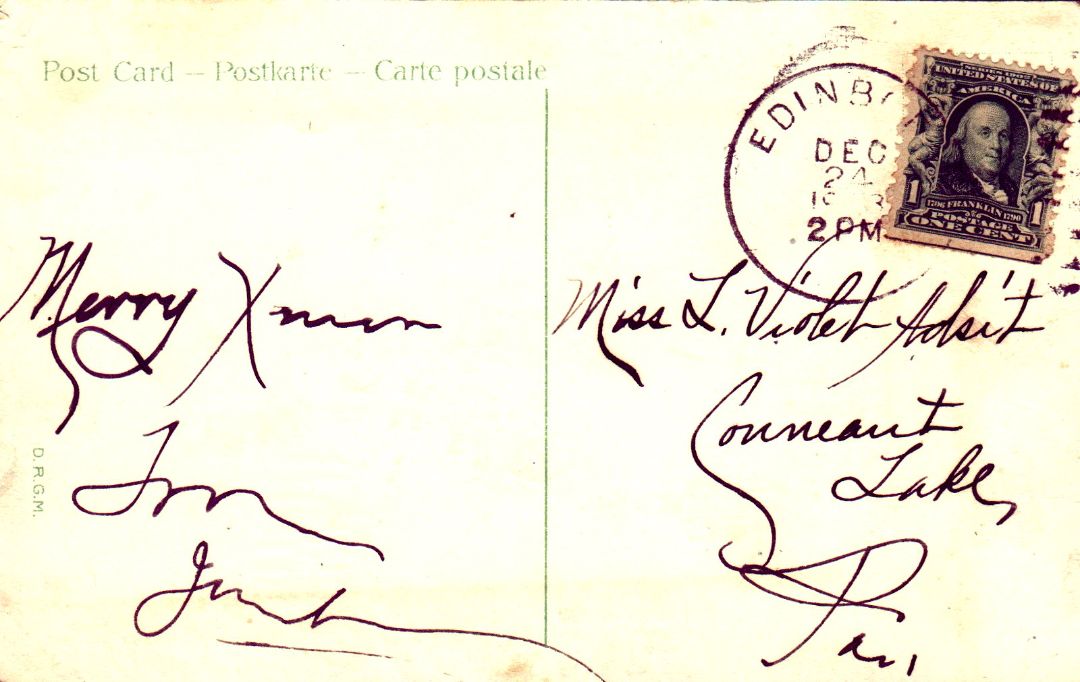 Post Card – Postkarte – Carte postale
EDINBO
DEC
24
2 PM
SERIES 1902
UNITED STATES OF
AMERICA
1 1706 FRANKLIN 1790 1
POSTAGE
ONE CENT
Merry Xmas
From
Miss L. Violet Adsit
Conneaut
Lake,
Pa.,
D.R.G.M.